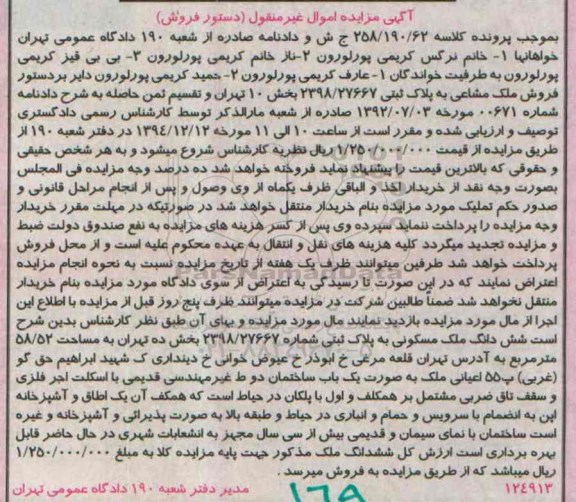 آگهی مزایده اموال غیرمنقول (دستور فروش)
بموجب پرونده کلاسه ۲۵۸/۱۹۰/۶۲ ج ش و دادنامه صادره از شعبه ۱۹۰ دادگاه عمومی تهران
خواهانها ۱- خانم نرگس کریمی پورلورون ۲-ناز خانم کریمی پورلورون ۳- بی بی قیز کریمی
پورلورون به طرفیت خواندگان ۱-عارف کریمی پورلورون ۲-حمید کریمی پورلورون دایر بردستور
فروش ملک مشاعی به پلاک ثبتی ۲۳۹۸/۲۷۶۶۷ بخش ۱۰ تهران و تقسیم ثمن حاصله به شرح دادنامه
شماره ۰۰۶۷۱ مورخه ۱۳۹۲/۰۷/۰۳ صادره از شعبه مارالذکر توسط کارشناس رسمی دادگستری
توصیف و ارزیابی شده و مقرر است از ساعت ۱۰ الی ۱۱ مورخه ۱۳۹٤/۱۲/۱۲ در دفتر شعبه ۱۹۰ از
طریق مزایده از قیمت ۱/۲۵۰/۰۰۰/۰۰۰ ریال نظریه کارشناس شروع میشود و به هر شخص حقیقی
و حقوقی که بالاترین قیمت را پیشنهاد نماید فروخته خواهد شد ده درصد وجه مزایده فی المجلس
بصورت وجه نقد از خریدار اخذ و الباقی ظرف یکماه از وی وصول و پس از انجام مراحل قانونی و
صدور حکم تملیک مورد مزایده بنام خریدار منتقل خواهد شد در صورتیکه در مهلت مقرر خریدار
وجه مزایده را پرداخت ننماید سپرده وی پس از کسر هزینه های مزایده به نفع صندوق دولت ضبط
و مزایده تجدید میگردد کلیه هزینه های نقل و انتقال به عهده محکوم علیه است و از محل فروش
پرداخت خواهد شد طرفین میتوانند ظرف یک هفته از تاریخ مزایده نسبت به نحوه انجام مزایده
اعتراض نمایند که در این صورت تا رسیدگی به اعتراض از سوی دادگاه مورد مزایده بنام خریدار
منتقل نخواهد شد ضمناً طالبین شرکت در مزایده میتوانند ظرف پنج روز قبل از مزایده با اطلاع این
اجرا از مال مورد مزایده بازدید نمایند مال مورد مزایده و بهای آن طبق نظر کارشناس بدین شرح
است شش دانگ ملک مسکونی به پلاک ثبتی شماره ۲۳۹۸/۲۷۶۶۷ بخش ده تهران به مساحت ۵۸/۵۲
مترمربع به آدرس تهران قلعه مرغی خ ابوذر خ عیوض خوانی خ دینداری ک شهید ابراهیم حق گو
(غربی) پ۵۵ اعیانی ملک به صورت یک باب ساختمان دو ط غیرمهندسی قدیمی با اسکلت اجر فلزی
و سقف تاق ضربی مشتمل بر همکف و اول با پلکان در حیاط است که همکف آن یک اطاق و آشپزخانه
این به انضمام با سرویس و حمام و انباری در حیاط و طبقه بالا به صورت پذیرائی و آشپزخانه و غیره
است ساختمان با نمای سیمان و قدیمی بیش از سی سال مجهز به انشعابات شهری در حال حاضر قابل
بهره برداری است ارزش کل ششدانگ ملک مذکور جهت پایه مزایده کلا به مبلغ ۱/۲۵۰/۰۰۰/۰۰۰
ریال میباشد که از طریق مزایده به فروش میرسد .
۱۲٤۹۱۳ مدیر دفتر شعبه ۱۹۰ دادگاه عمومی تهران
۱۶۹